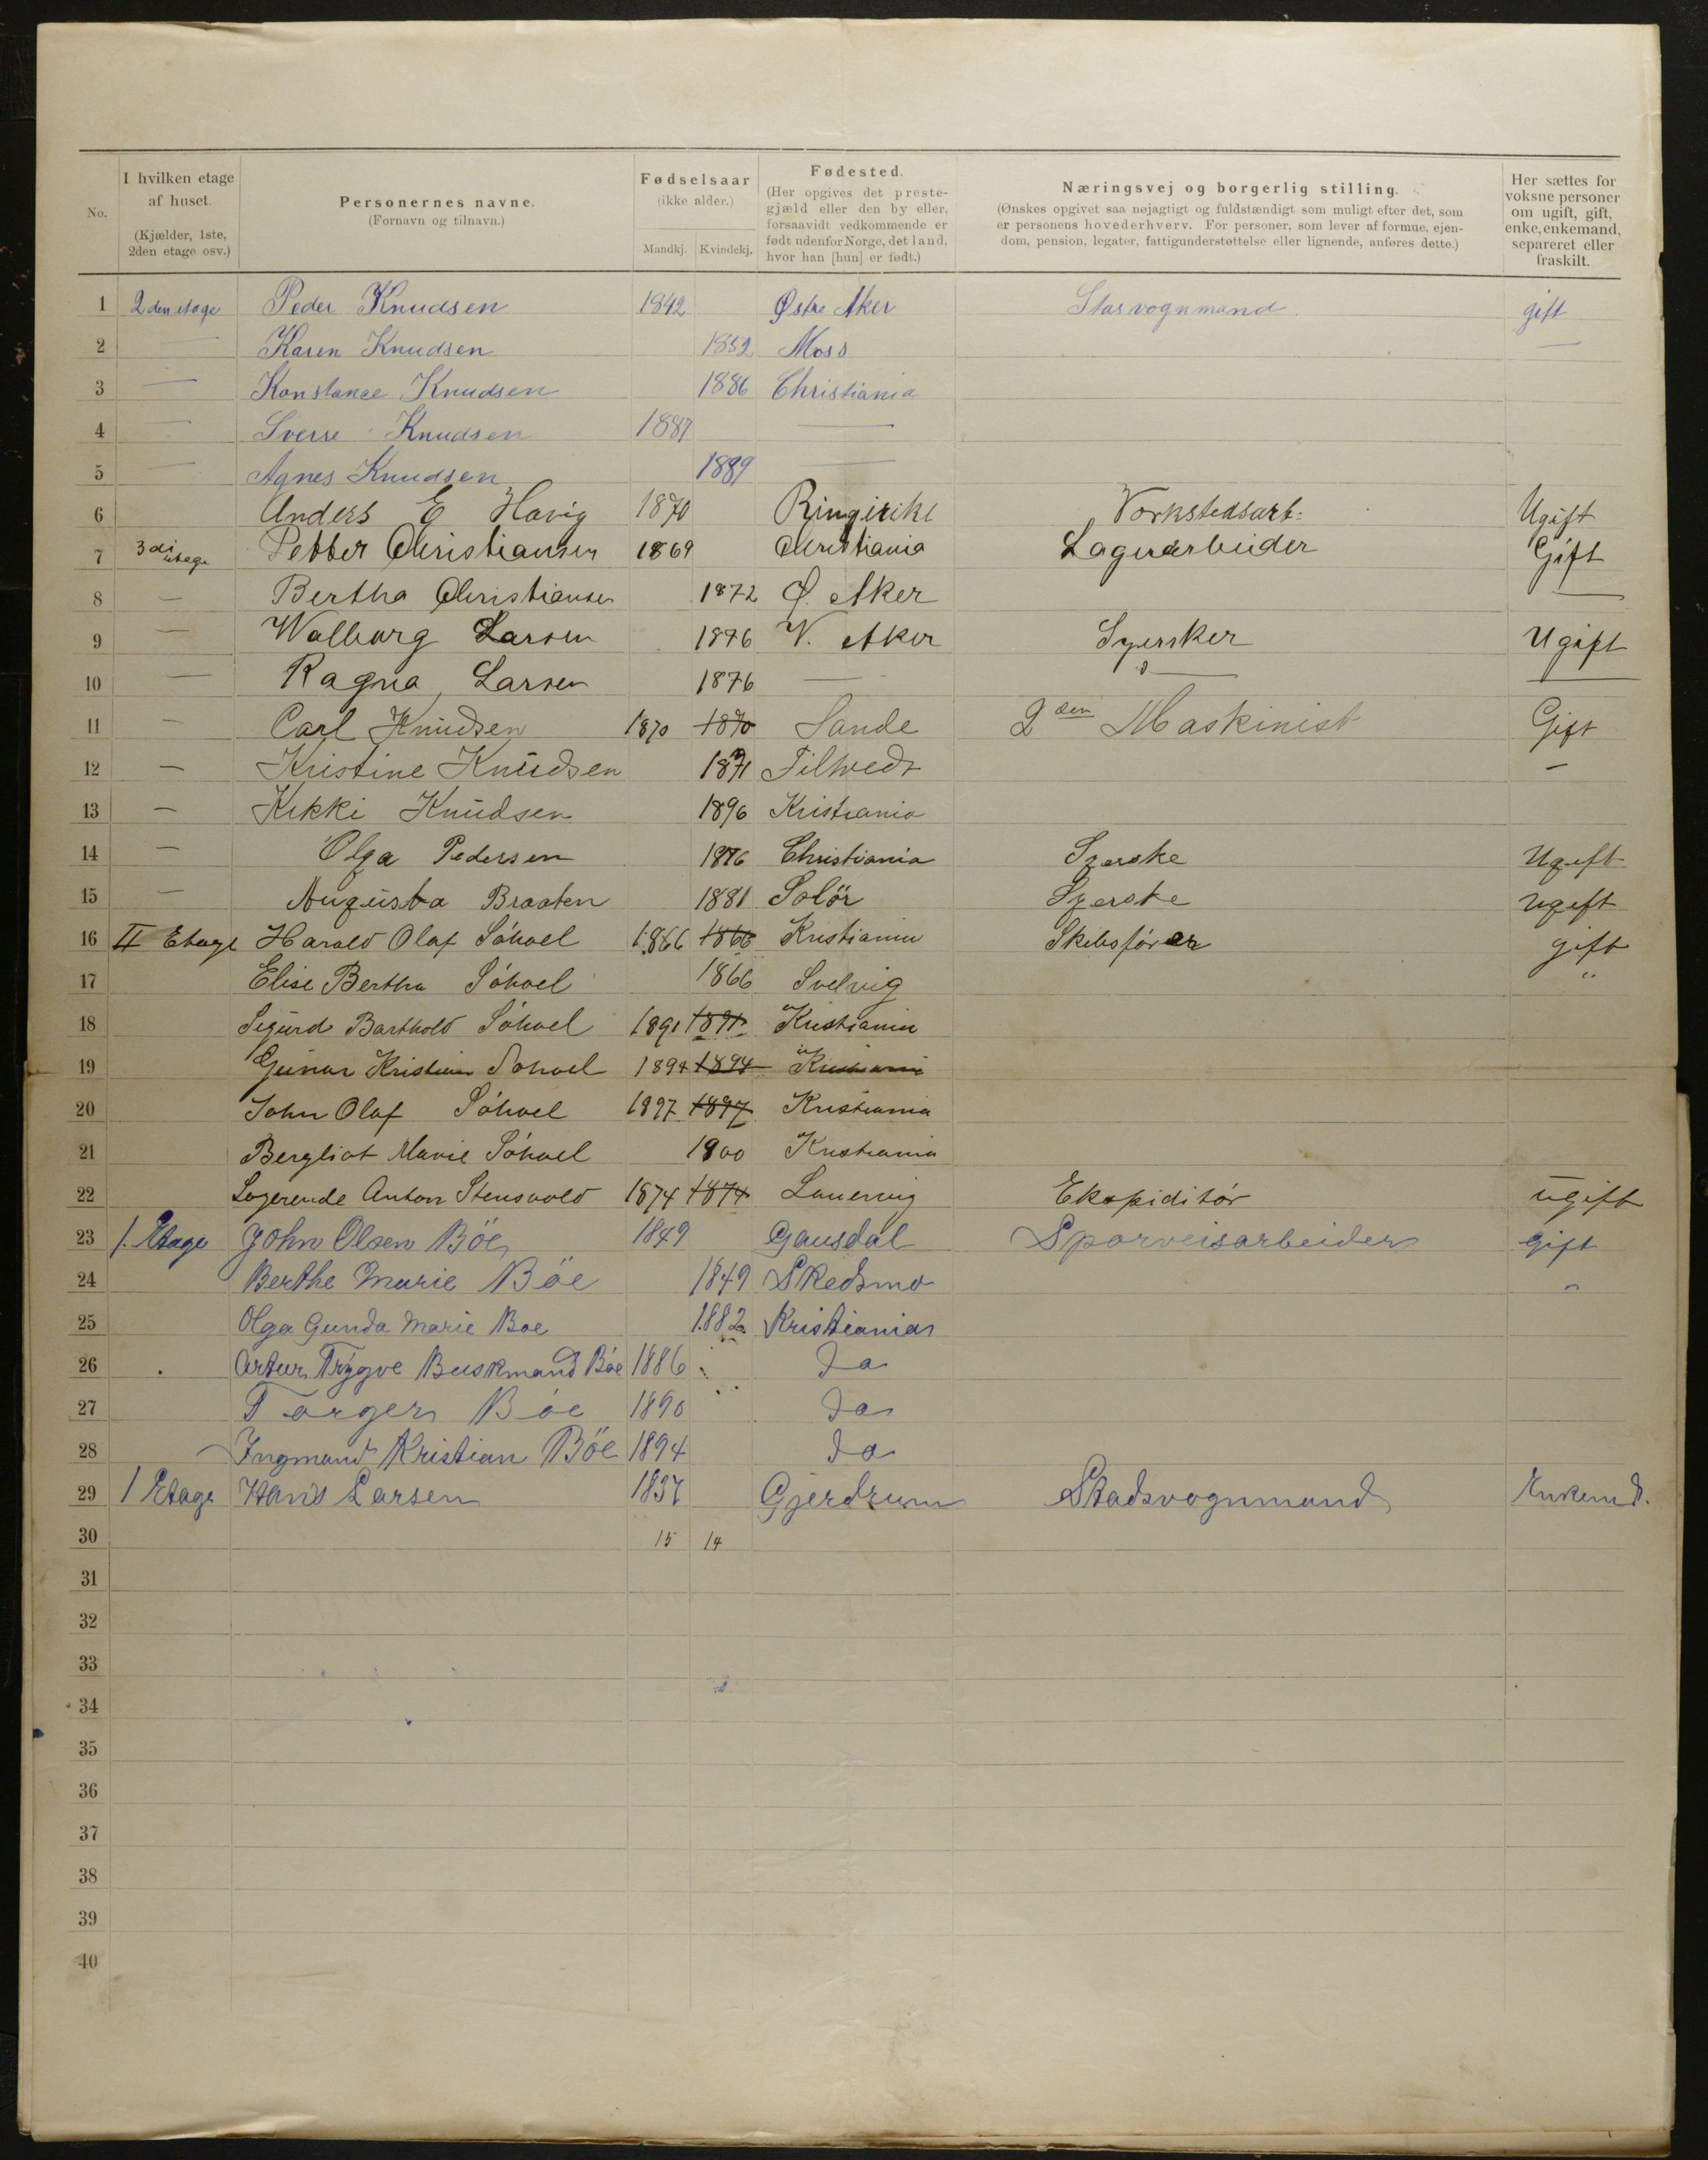 No.
I hvilken etage
af huset.
(Kjælder, 1ste,
2den etage osv.)
Personernes navne.
(Fornavn og tilnavn.)
Fødselsaar
(ikke alder.)
Mandkj. Kvindekj.
Fødested.
(Her opgives det preste-
gjæld eller den by eller,
forsaavidt vedkommende er
født udenfor Norge, det land,
hvor han [hun] er født.)
Næringsvej og borgerlig stilling.
(Ønskes opgivet saa nøjagtigt og fuldstændigt som muligt efter det, som
er personens hovederhverv. For personer, som lever af formue, ejen-
dom, pension, legater, fattigunderstøttelse eller lignende, anføres dette.)
Her sættes for
voksne personer
om ugift, gift,
enke, enkemand,
separeret eller
fraskilt.
1 2den etage Peder Knudsen 1842 Østre Aker Stasvognmand. gift
2 — Karen Knudsen 1852 Moss —
3 — Konstance Knudsen 1886 Christiania
4 — Sverre Knudsen 1887 —
5 — Agnes Knudsen 1889 —
6 Anders E Havig 1870 Ringirike Vorkstedsarb: Ugift
7 3di etage Petter Christiansen 1869 Christiania Lagerarbeider Gift
8 — Bertha Christiansen 1872 Ø. Aker —
9 — Walborg Larsen 1876 V. Aker Syersker Ugift
10 — Ragna Larsen 1876 — — —
11 — Carl Knudsen 1870 1870 Sande 2den Maskinist Gift
12 — Kristine Knudsen 1871 Filtvedt —
13 — Kikki Knudsen 1896 Kristiania
14 — Olga Pedersen 1876 Christiania Syerske Ugift
15 — Augusta Braaten 1881 Solør Syerske ugift
16 II Etage Harald Olaf Söhoel 1866 1866 Kristiania Skibsförer gift
17 Elise Bertha Söhoel 1866 Svelvig "
18 Sigurd Barthold Söhoel 1891 1891 Kristiania
19 Gunar Kristian Söhoel 1894 1894 Kristiania
20 John Olaf Söhoel 1897 1897 Kristiania
21 Bergliot Marie Söhoel 1900 Kristiania
22 Logerende Anton Stensvold 1874 1874 Laurvig Ekspiditör ugift
23 1. Etage John Olsen Böe 1849 Gausdal Sporveisarbeider gift
24 Berthe Marie Böe 1849 Skedsmo "
25 Olga Gunda Marie Boe 1882 Kristiania
26 Artur Trygve Buskmand Böe 1886 Do
27 Torger Böe 1890 Do
28 Ingmand Kristian Böe 1894 Do
29 1 Etage Hans Larsen 1837 Gjerdrum Stadsvognmand Enkemd.
30 15 14
31
32
33
34
35
36
37
38
39
40